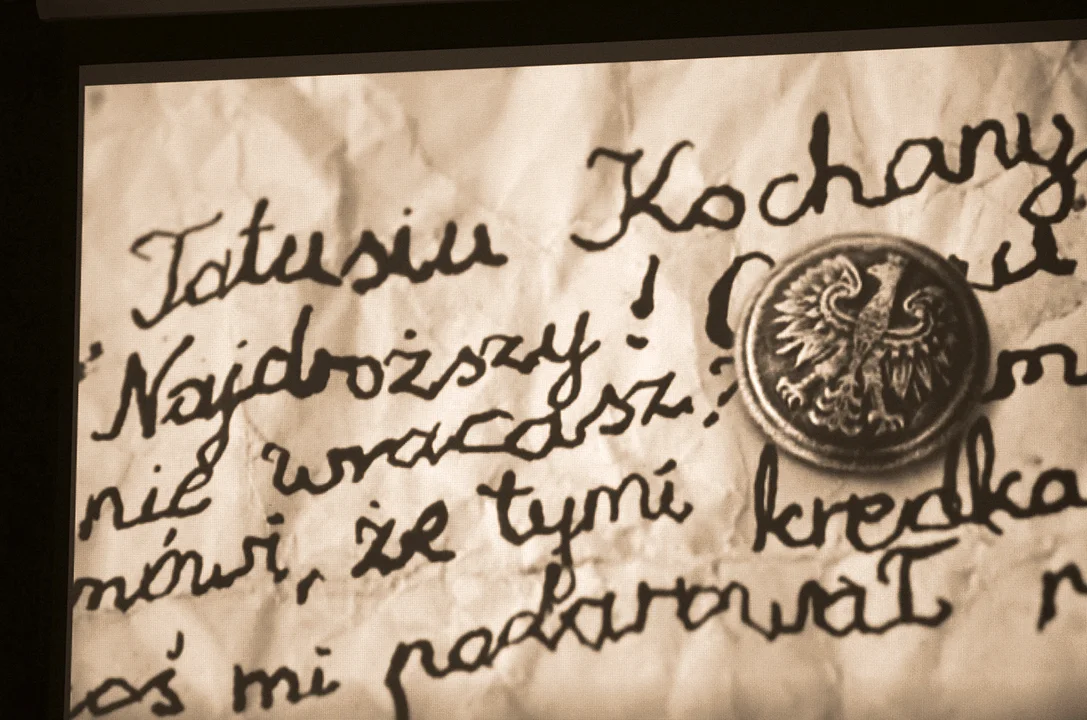 Tatusiu Kochany
Najdroższy!
nie wracasz?
mówi, że tymi kredka
oś mi podarował